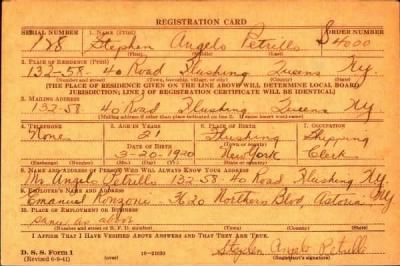 REGISTRATION CARD
SERIAL NUMBER 1. NAME (Print) ORDER NUMBER
188 Stephen Angelo Petrillo
2. PLACE OF RESIDENCE (Print)
132-58 40 Road Flushing Queens N.Y.
(Number and street) (Town, township, village, or city) (County) (State)
[THE PLACE OF RESIDENCE GIVEN ON THE LINE ABOVE WILL DETERMINE LOCAL BOARD
JURISDICTION; LINE 2 OF REGISTRATION CERTIFICATE WILL BE IDENTICAL]
3. MAILING ADDRESS
132-58 40 Road Flushing Queens NY
4. TELEPHONE 5. AGE IN YEARS 6. PLACE OF BIRTH 7. OCCUPATION
None 21 Flushing Shipping
DATE OF BIRTH
3-20-1920 New York Clerk
(Exchange) (Number) (Mo.) (Day) (Yr.) (State or country)
8. NAME AND ADDRESS OF PERSON WHO WILL ALWAYS KNOW YOUR ADDRESS
Mr Angelo Petrillo 132-58 40 Road Flushing N.Y.
9. EMPLOYER'S NAME AND ADDRESS
Emanuel Ronzoni Northern Blvd, Astoria NY
10. PLACE OF EMPLOYMENT OR BUSINESS
Same as above
I AFFIRM THAT I HAVE VERIFIED ABOVE ANSWERS AND THAT THEY ARE TRUE.
Stephen Angelo Petrillo
D. S. S. Form 1
(Revised 6-9-41)
(Registrant's signature)